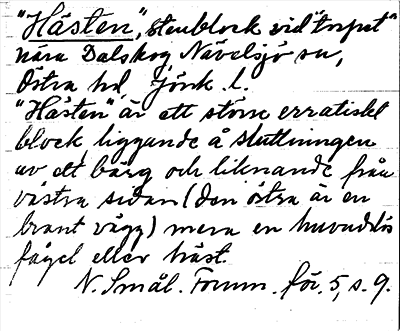 "Hästen", stenblock vid "torpet"
nära Dalskog Nävelsjö sn,
Östra hd, Jönk. l.
"Hästen" är ett större erratiskt
block liggande å sluttningen
av ett bärg och liknande från
västra sidan (den östra är en
brant vägg) mera en huvudlös
fågel eller häst.
N. Smål. Fornm. för. 5, s. 9.